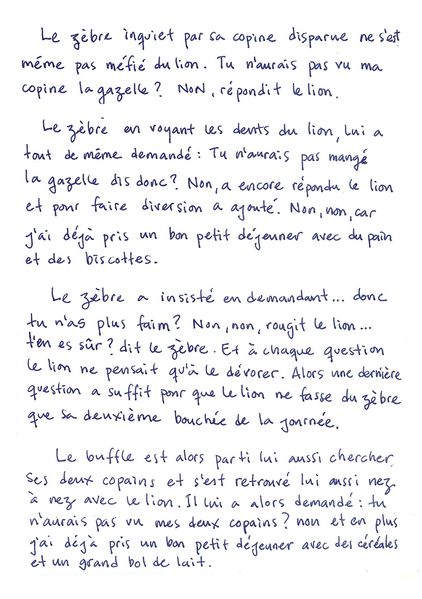 Le zèbre inquiet par sa copine disparue ne s'est
même pas méfié du lion. Tu n'aurais pas vu ma
copine la gazelle ? NON, répondit le lion.
Le zèbre en voyant les dents du lion, lui a
tout de même demandé : Tu n'aurais pas mangé
la gazelle dis donc ? Non, a encore répondu le lion
et pour faire diversion a ajouté. Non, non, car
j'ai déjà pris un bon petit déjeuner avec du pain
et des biscottes.
Le zèbre a insisté en demandant... donc
tu n'as plus faim ? Non, non, rougit le lion...
t'en es sûr ? dit le zèbre. Et à chaque question
le lion ne pensait qu'à le dévorer. Alors une dernière
question a suffit pour que le lion ne fasse du zèbre
que sa deuxième bouchée de la journée.
Le buffle est alors parti lui aussi chercher
ses deux copains et s'est retrouvé lui aussi nez
à nez avec le lion. Il lui a alors demandé : tu
n'aurais pas vu mes deux copains ? non et en plus
j'ai déjà pris un bon petit déjeuner avec des céréales
et un grand bol de lait.